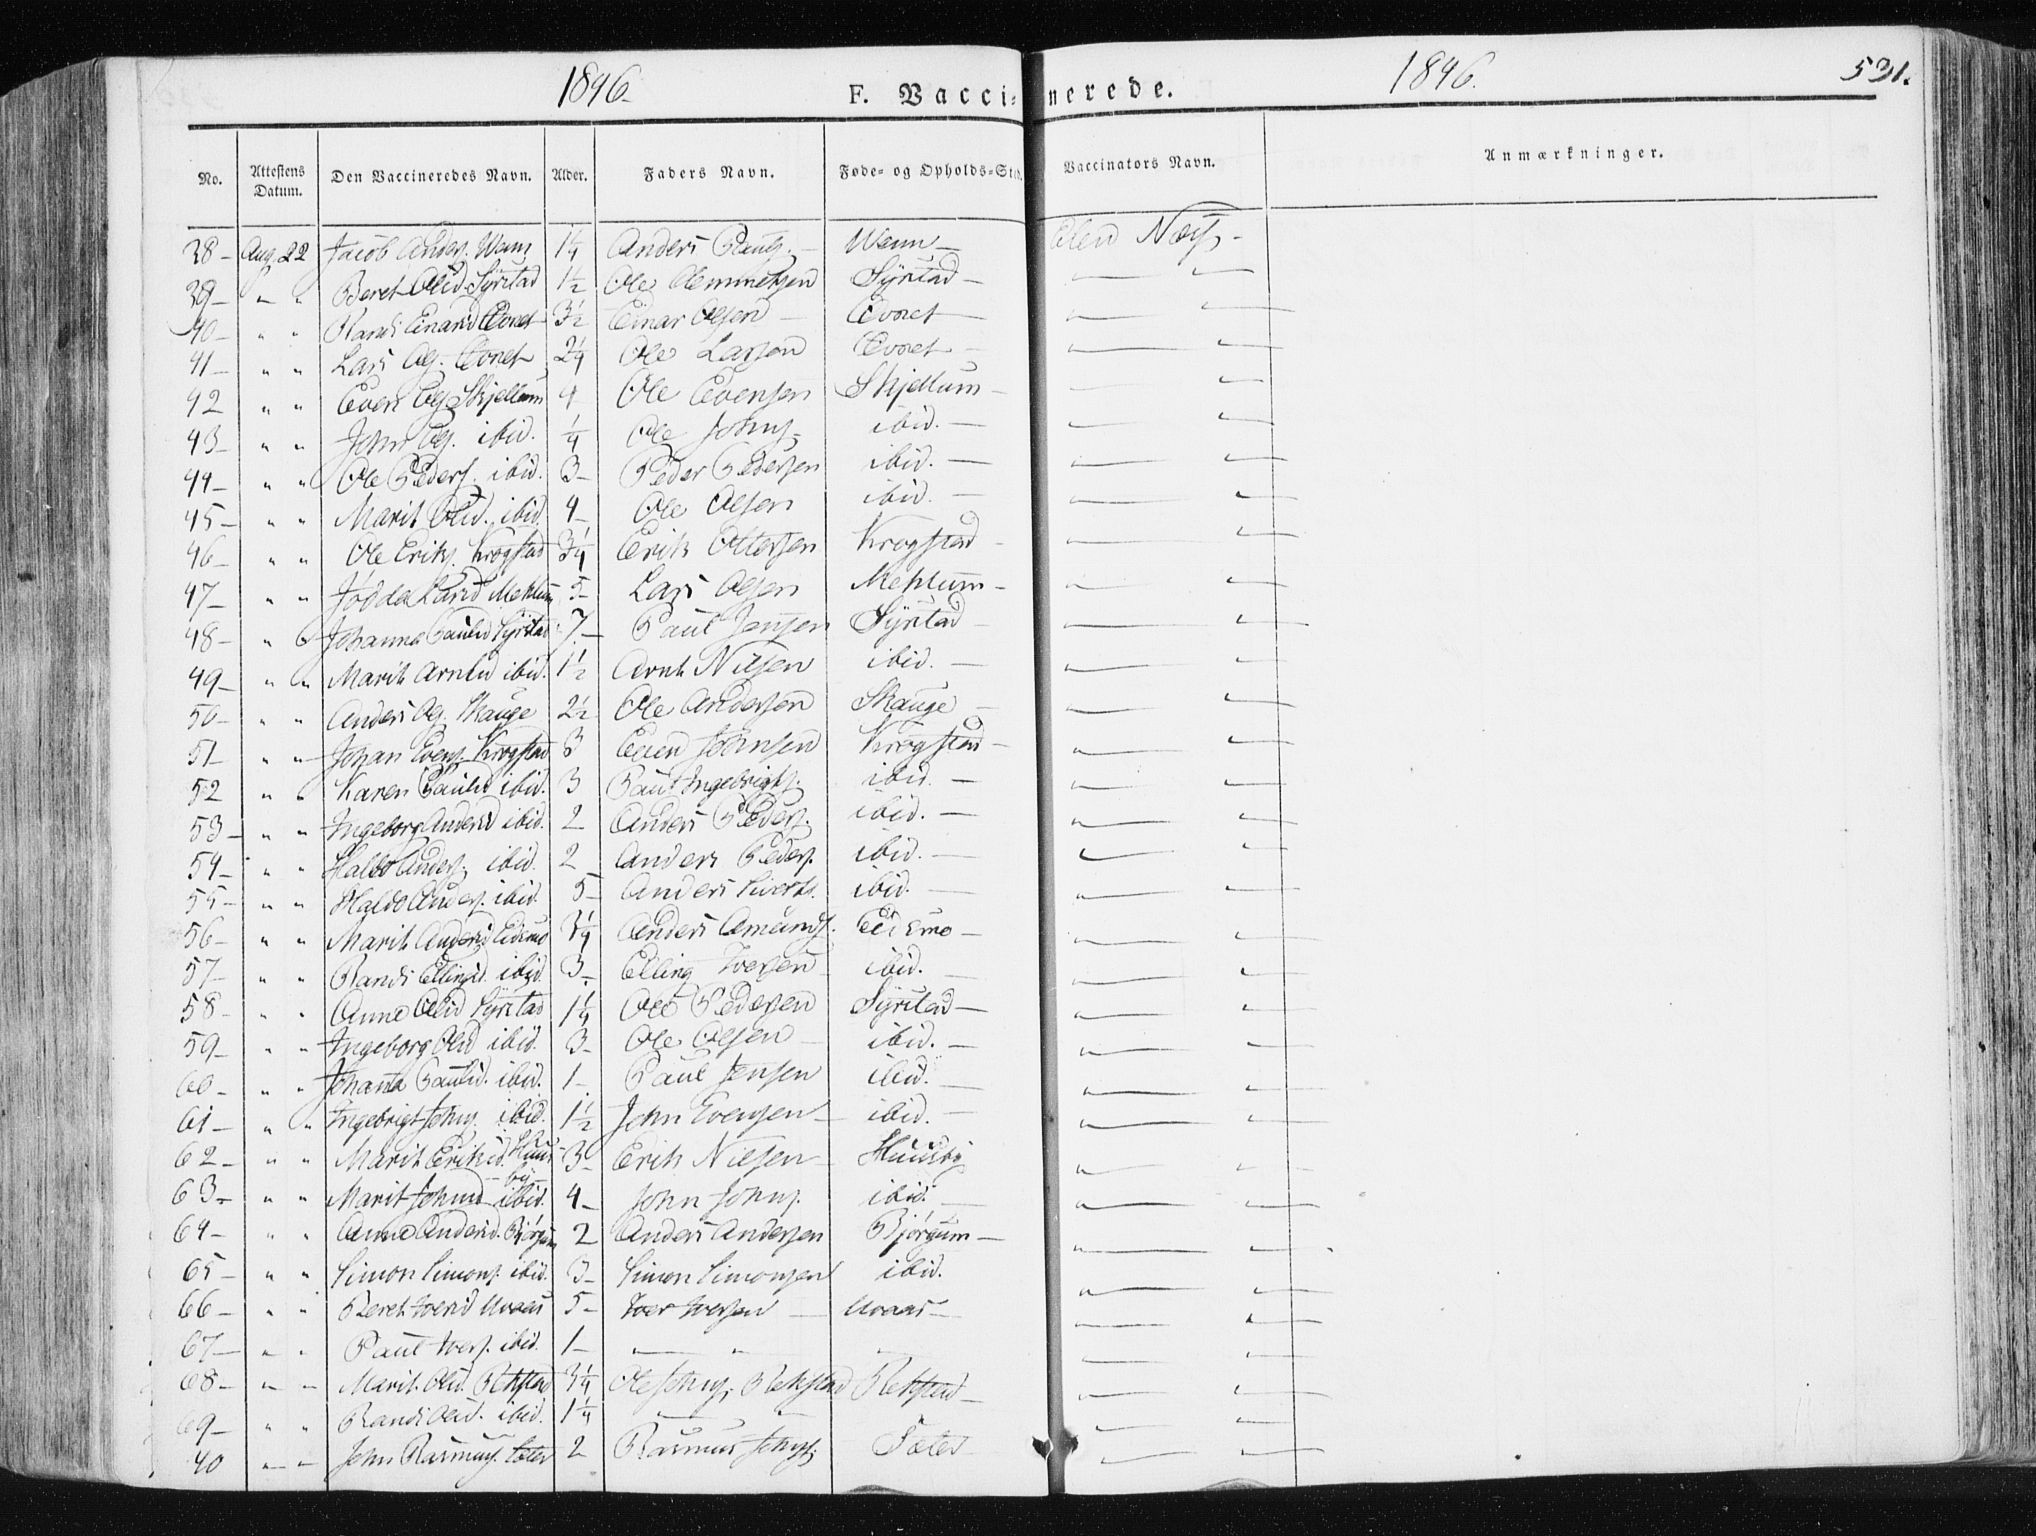 1846. F. Vaccinerede. 1846. 531.
No. Attestens Datum. Den Vaccineredes Navn. Alder. Faders Navn. Føde- og Opholds-Sted. Vaccinators Navn. Anmærkninger.
38 - Aug. 22 Jacob Anders. Wenn 1 1/4 Anders Pauls. - Wenn - Næss -
39 - " " Beret Olsd Syrstad 1 1/2 Ole Clemmetsen Syrstad -
40 - " " Randi Einarsd Evnet 3 1/2 Einar Olsen - Evnet
41 - " " Lars Ols. Evnet 2 1/4 Ole Larsen Evnet -
42 " " Even Ols Skjellum 4 Ole Evensen Skjellum -
43 - " " John Ols. ibid. 1/4 Ole Johns. ibid. -
44 - " " Ole Peders. ibid. 3 - Peder Pedersen ibid. -
45 - " " Marit Olsd. ibid. 4 - Ole Olsen ibid. -
46 - " " Ole Eriks. Krogstad 3 1/4 Erik Ottersen Krogstad -
47 - " " Jødda Larsd Mehlum 5 - Lars Olsen Mehlum -
48 - " " Johanna Paulsd Syrstad 7 - Paul Jensen Syrstad -
49 - " " Marit Arntsd ibid. 1 1/2 Arnt Nilsen ibid. -
50 - " " Anders Ols. Skauge 2 1/2 Ole Andersen Skauge -
51 - " " Johan Evens. Krogstad 3 Even Johnsen Krogstad -
52 " " Karen Paulsd ibid. 3 Paul Ingebrigts. ibid. -
53 - " " Ingeborg Andersd ibid. 2 Anders Peders. ibid. -
54 - " " Haldo Anders. ibid. 2 Anders Peders. ibid. -
55 - " " Haldo Anders. ibid. 5 - Anders Siverts. ibid. -
56 - " " Marit Andersd Eidsmo 3 1/4 Anders Amunds. Eidsmo -
57 - " " Randi Ellingsd. ibid 3 - Elling Iversen ibid. -
58 - " " Anne Olsd Syrstad 1 1/4 Ole Pedersen Syrstad -
59 - " " Ingeborg Olsd ibid. 3 - Ole Olsen - ibid. -
60 - " " Johanna Paulsd. ibid. 1 - Paul Jensen ibid. -
61 - " " Ingebrigt Johns. ibid. 1 1/2 John Evensen - ibid. -
62 - " " Marit Eriksd. Huus- 3 - Erik Nilsen - Huusby
- by -
63 - " " Marit Johnsd ibid. 4 - John Johns. ibid. -
64 - " " Anne Andersd. Bjørgum 2 Anders Andersen Bjørgum -
65 - " " Simon Simons. ibid. 3 - Simon Simonsen ibid.
66 - " " Beret Iversd Uvaas 5 - Iver Iversen - Uvaas -
67 - " " Paul Ivers. ibid. 1 - " "
68 - " " Marit Olsd. Rekstad 3 1/4 Ole Johns. Rekstad Rekstad -
69 - " " Randi Olsd. ibid. 1 1/4
40 " " John Rasmus. Sæter 2 Rasmus Johns. Sæter